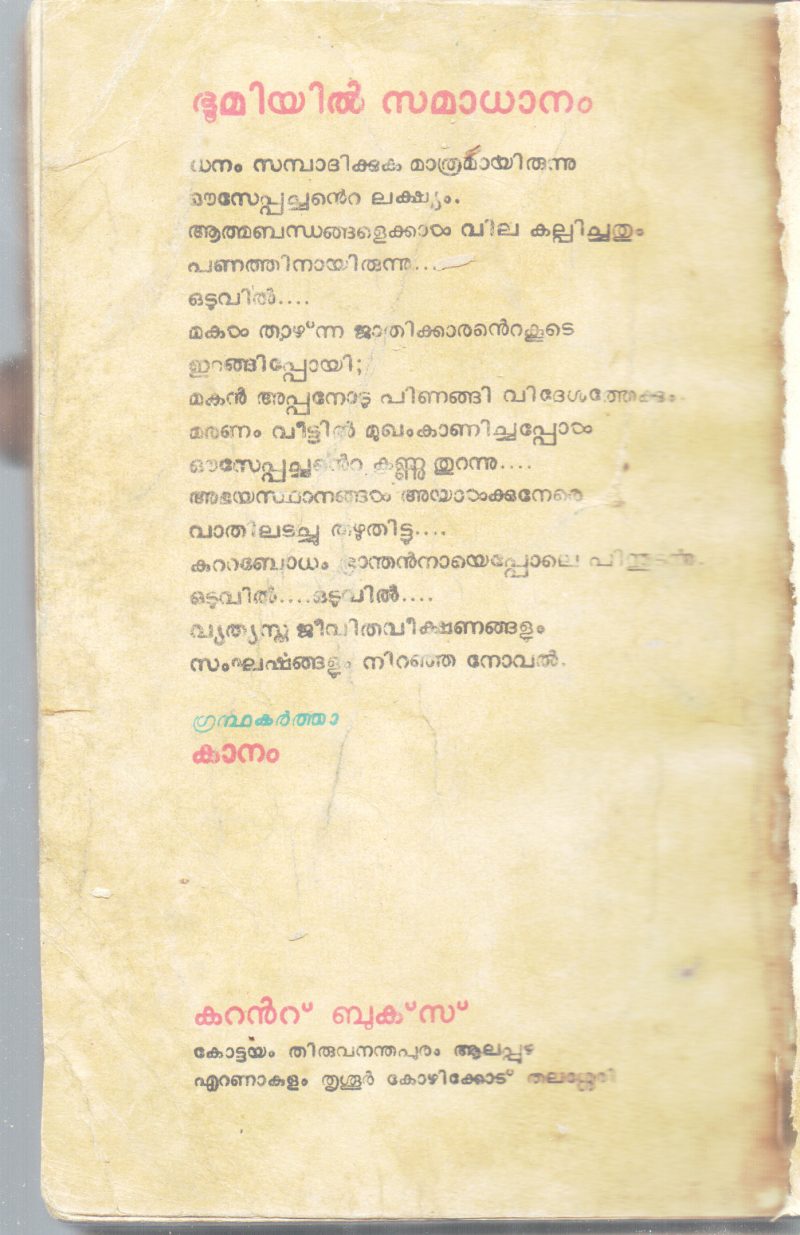 ഭൂമിയിൽ സമാധാനം
ധനം സമ്പാദിക്കുക മാത്രമായിരുന്നു
ഔസേപ്പച്ചൻെറ ലക്ഷ്യം.
ആത്മബന്ധങ്ങളെക്കാൾ വില കല്പിച്ചതും
പണത്തിനായിരുന്നു....
ഒടുവിൽ....
മകൾ താഴ്ന്ന ജാതിക്കാരൻെറകൂടെ
ഇറങ്ങിപ്പോയി;
മകൻ അപ്പനോടു പിണങ്ങി വിദേശത്തേക്കും.
മരണം വീട്ടിൽ മുഖംകാണിച്ചപ്പോൾ
ഔസേപ്പച്ചൻെറ കണ്ണു തുറന്നു....
അഭയസ്ഥാനങ്ങൾ അയാൾക്കുനേരെ
വാതിലടച്ചു തഴുതിട്ടു....
കുററബോധം ഭ്രാന്തൻനായെപ്പോലെ
ഒടുവിൽ....ഒടുവിൽ....
വ്യത്യസ്ത ജീവിതവീക്ഷണങ്ങളും
സംഘർഷങ്ങളും നിറഞ്ഞ നോവൽ.
ഗ്രന്ഥകർത്താ
കാനം
കറൻറ് ബുക്സ്
കോട്ടയം തിരുവനന്തപുരം ആലപ്പുഴ
എറണാകുളം തൃശൂർ കോഴിക്കോട് തലശ്ശേരി